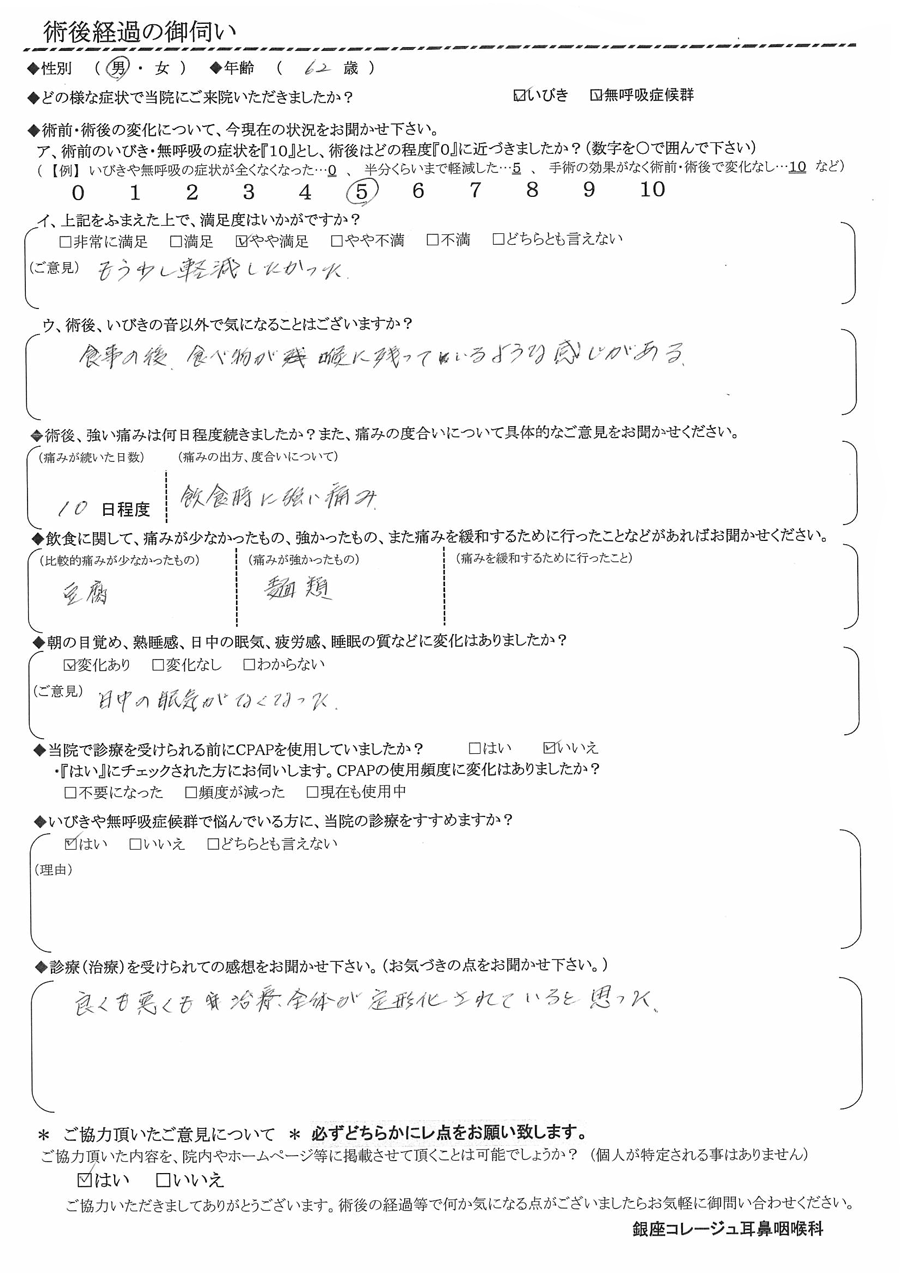 術後経過の御伺い
◆性別 ( 男 ・ 女 ) ◆年齢 ( 62 歳 )
◆どの様な症状で当院にご来院いただきましたか? ☑いびき ☑無呼吸症候群
◆術前・術後の変化について、今現在の状況をお聞かせ下さい。
ア、術前のいびき・無呼吸の症状を『10』とし、術後はどの程度『0』に近づきましたか?(数字を○で囲んで下さい)
(【例】いびきや無呼吸の症状が全くなくなった…0 、 半分くらいまで軽減した…5 、 手術の効果がなく術前・術後で変化なし…10 など)
0 1 2 3 4 5 6 7 8 9 10
イ、上記をふまえた上で、満足度はいかがですか?
□非常に満足 □満足 ☑やや満足 □やや不満 □不満 □どちらとも言えない
(ご意見) もう少し軽減したかった.
ウ、術後、いびきの音以外で気になることはございますか?
食事の後、食べ物が喉に残っているような感じがある.
◆術後、強い痛みは何日程度続きましたか?また、痛みの度合いについて具体的なご意見をお聞かせください。
(痛みが続いた日数) (痛みの出方、度合いについて)
10 日程度 飲食時に強い痛み.
◆飲食に関して、痛みが少なかったもの、強かったもの、また痛みを緩和するために行ったことなどがあればお聞かせください。
(比較的痛みが少なかったもの) (痛みが強かったもの) (痛みを緩和するために行ったこと)
豆腐 麺類
◆朝の目覚め、熟睡感、日中の眠気、疲労感、睡眠の質などに変化はありましたか?
☑変化あり □変化なし □わからない
(ご意見) 日中の眠気がなくなった.
◆当院で診療を受けられる前にCPAPを使用していましたか? □はい ☑いいえ
・『はい』にチェックされた方にお伺いします。CPAPの使用頻度に変化はありましたか?
□不要になった □頻度が減った □現在も使用中
◆いびきや無呼吸症候群で悩んでいる方に、当院の診療をすすめますか?
☑はい □いいえ □どちらとも言えない
(理由)
◆診療(治療)を受けられての感想をお聞かせ下さい。(お気づきの点をお聞かせ下さい。)
良くも悪くも治療全体が定形化されていると思った.
＊ ご協力頂いたご意見について ＊ 必ずどちらかにレ点をお願い致します。
ご協力頂いた内容を、院内やホームページ等に掲載させて頂くことは可能でしょうか? (個人が特定される事はありません)
☑はい □いいえ
ご協力いただきましてありがとうございます。術後の経過等で何か気になる点がございましたらお気軽に御問い合わせください。
銀座コレージュ耳鼻咽喉科